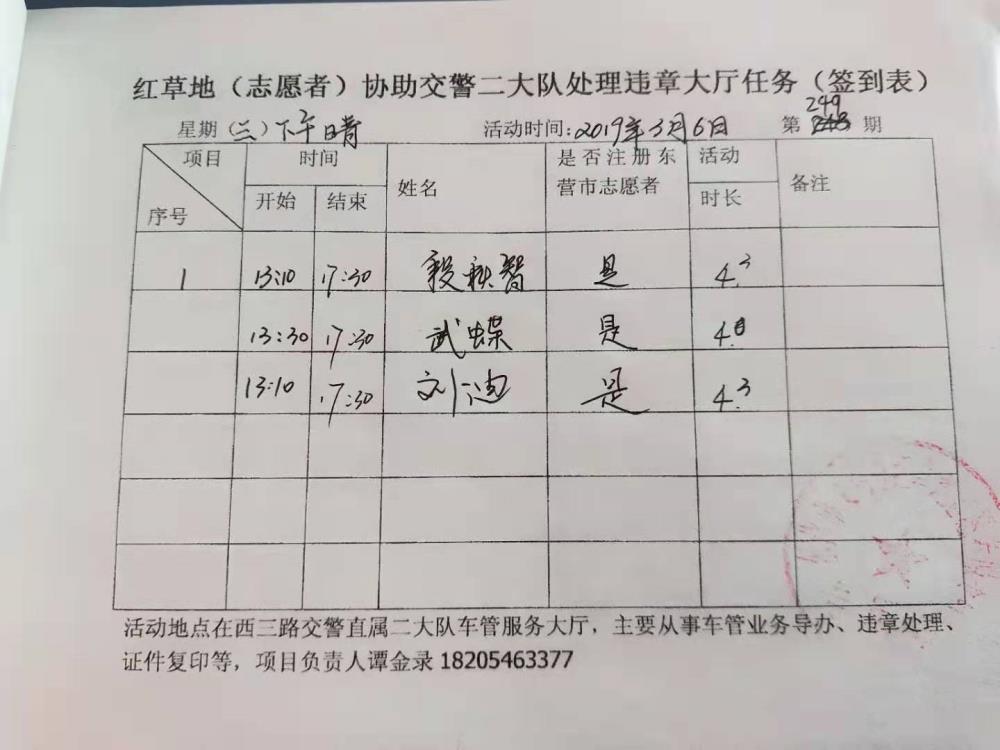 红草地（志愿者）协助交警二大队处理违章大厅任务（签到表）
星期（三）下午晴 活动时间：2019年3月6日 第249期
项目 时间 姓名 是否注册东营市志愿者 活动时长 备注
序号 开始 结束
1 13:10 17:30 是 4.3
13:30 17:30 武蝶 是 4.
13:10 17:30 刘迪 是 4.3
活动地点在西三路交警直属二大队车管服务大厅，主要从事车管业务导办、违章处理、
证件复印等，项目负责人谭金录 18205463377